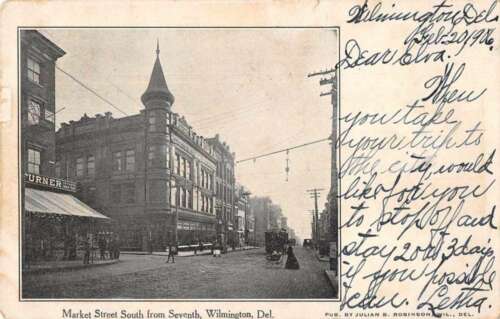 Wilmington, Del.
Feb. 20/906
Dear Elva.
When
you take
your trip to
the city would
like for you
to stop off and
stay 2 or 3 days
if you possibly
can. Lena.
TURNER
Market Street South from Seventh, Wilmington, Del.
PUB. BY JULIAN B. ROBINSON, WIL., DEL.